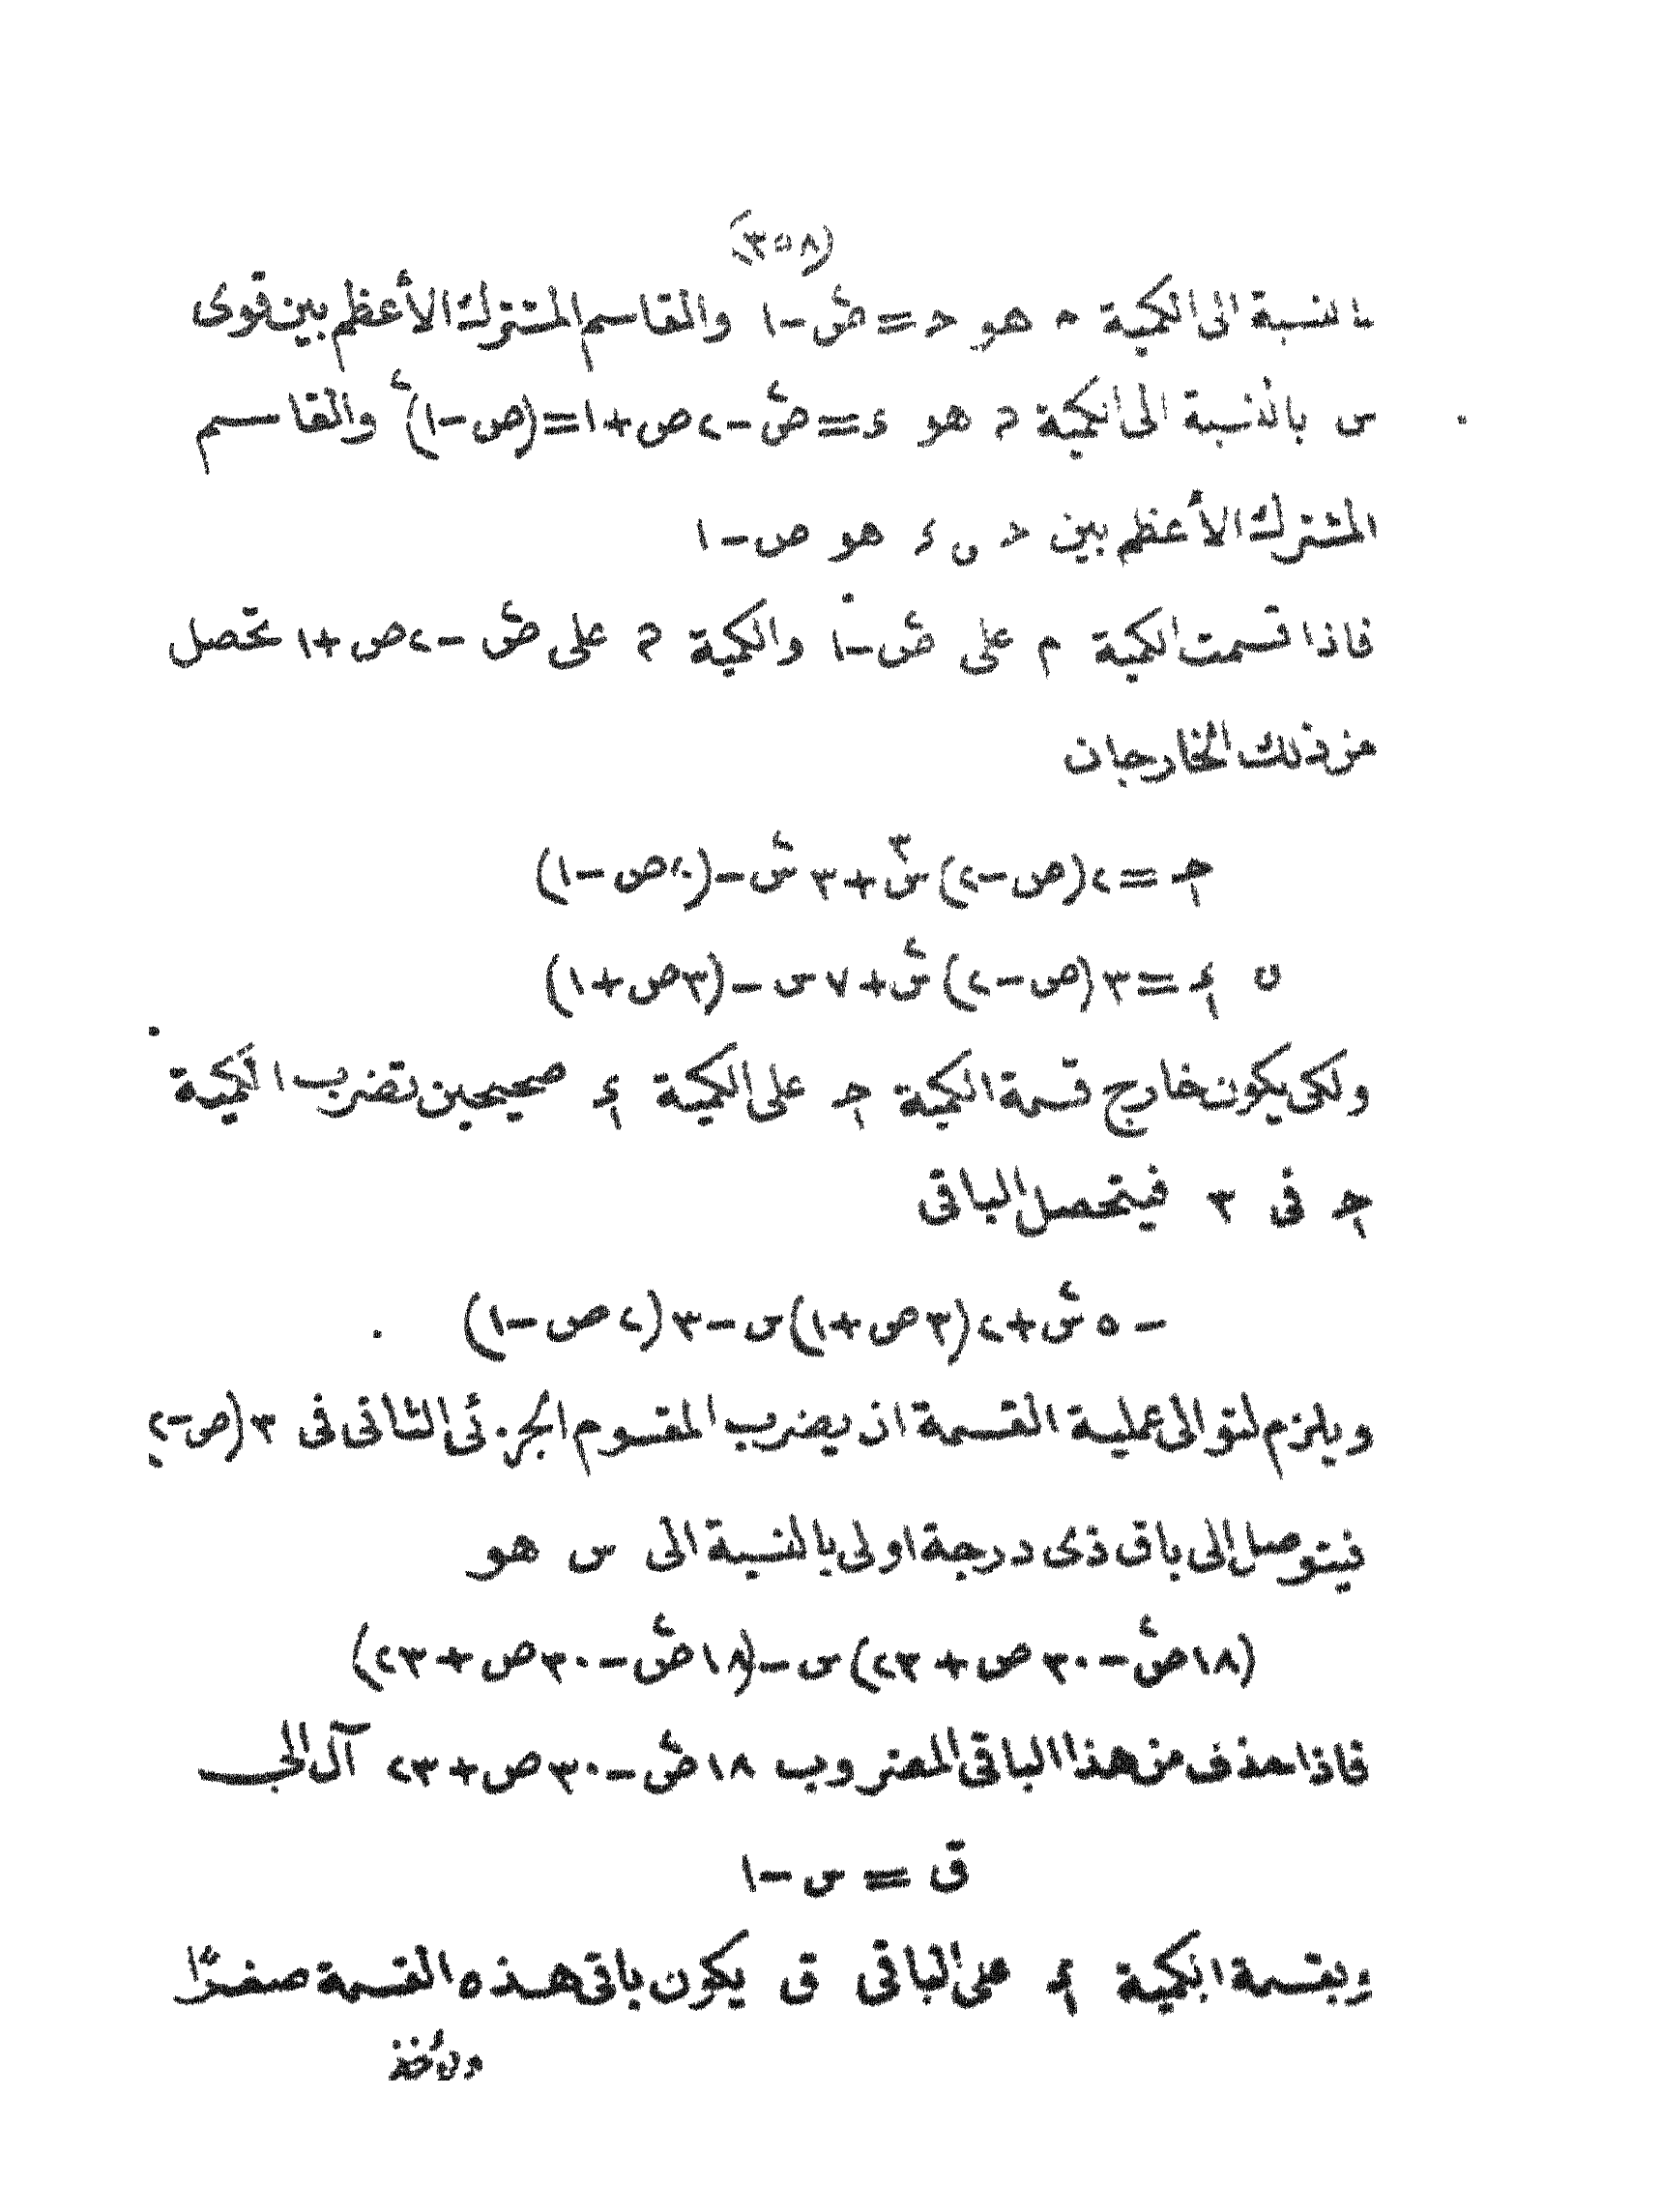 (٣٥٨)
بالنسبة الى الكمية م هو حـ = ص٢-١ والقاسم المشترك الأعظم بين قوى
س بالنسبة الى الكمية م هو ء = ص٢-٢ص+١=(ص-١)٢ والقاسم
المشترك الأعظم بين حـ و ء هو ص-١
فاذا قسمت الكمية م على ص٢-١ والكمية م على ص٢-٢ص+١ تحصل
من ذلك الخارجان
حـ = ٢(ص-٢)س٣+٣س٢-(٢ص-١)
و ء = ٣(ص-٢)س٢+٧س-(٣ص+١)
ولكى يكون خارج قسمة الكمية حـ على الكمية ء صحيحين تضرب الكمية
حـ فى ٣ فيتحصل الباقى
-٥س٢+٢(٣ص+١)س-٣(٢ص-١)
ويلزم لتوالى عملية القسمة ان يضرب المقسوم الجزئى الثانى فى ٣(ص-٢)
فيتوصل الى باق ذى درجة اولى بالنسبة الى س هو
(١٨ص٢-٣٠ص+٢٣)س-(١٨ص٢-٣٠ص+٢٣)
فاذا حذف من هذا الباقى المضروب ١٨ص٢-٣٠ص+٢٣ آل الى
ق = س-١
وبقسمة الكمية ء على الباقى ق يكون باقى هذه القسمة صفرًا